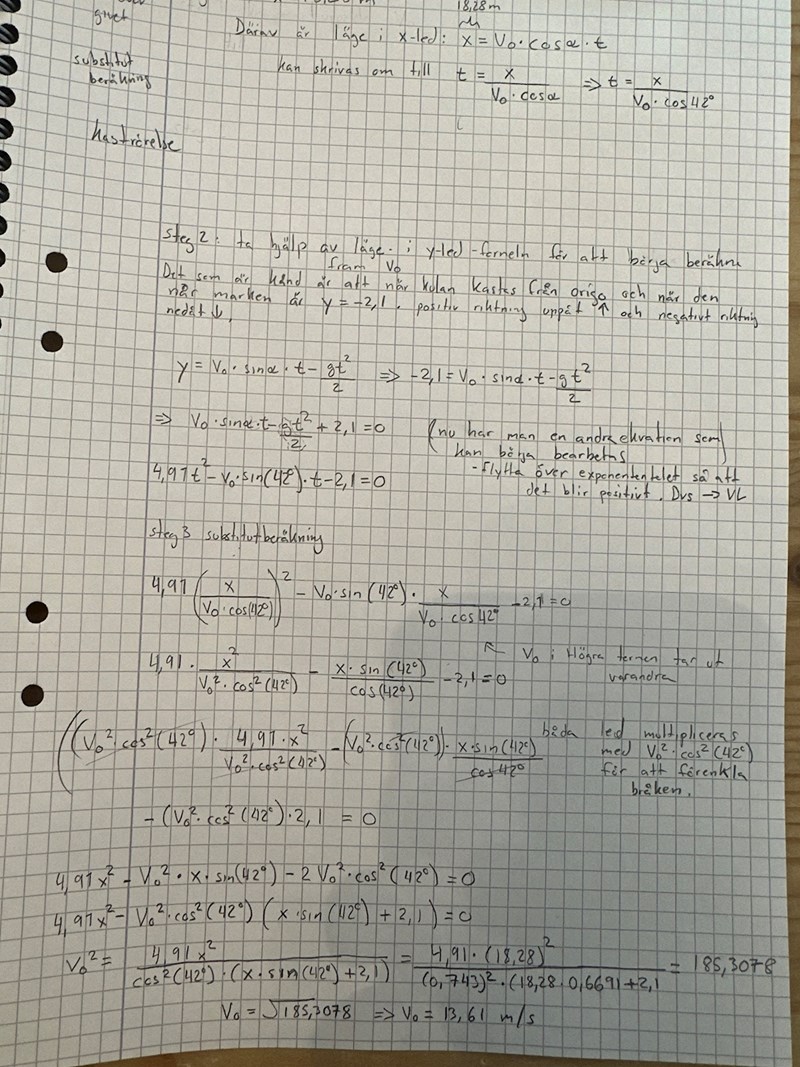 18,28m
givet
Därav är läge i x-led: x = V₀·cosα·t
substitut
beräkning
kan skrivas om till t = x / (V₀·cosα) => t = x / (V₀·cos42°)
kaströrelse
steg 2: ta hjälp av läge i y-led-formeln för att börja beräkna
fram V₀
Det som är känd är att när kulan kastas från origo och när den
når marken är y = -2,1. positiv riktning uppåt ↑ och negativt riktnig
nedåt ↓.
y = V₀·sinα·t - gt²/2 => -2,1 = V₀·sinα·t - gt²/2
=> V₀·sinα·t - gt²/2 + 2,1 = 0
(nu har man en andraekvation som
kan börja bearbetas
4,91t² - V₀·sin(42°)·t - 2,1 = 0
- flytta över exponententelet så att
det blir positivt. Dvs → VL
steg 3 substitutberäkning
4,91 (x / (V₀·cos(42°)))² - V₀·sin(42°)· x / (V₀·cos42°) - 2,1 = 0
↖ V₀ i Högra termen tar ut
varandra
4,91 · x² / (V₀²·cos²(42°)) - x·sin(42°) / cos(42°) - 2,1 = 0
((V₀²·cos²(42°)· 4,91·x² / (V₀²·cos²(42°)) - (V₀²·cos²(42°))· x·sin(42°) / cos42°
båda led multipliceras
med V₀²·cos²(42°)
för att förenkla
bråken.
- (V₀²·cos²(42°)·2,1 = 0
4,91x² - V₀²·x·sin(42°) - 2V₀²·cos²(42°) = 0
4,91x² - V₀²·cos²(42°) (x·sin(42°) + 2,1) = 0
V₀² = 4,91x² / (cos²(42°)·(x·sin(42°)+2,1)) = 4,91·(18,28)² / ((0,743)²·(18,28·0,6691+2,1) = 185,3078
V₀ = √185,3078 => V₀ = 13,61 m/s